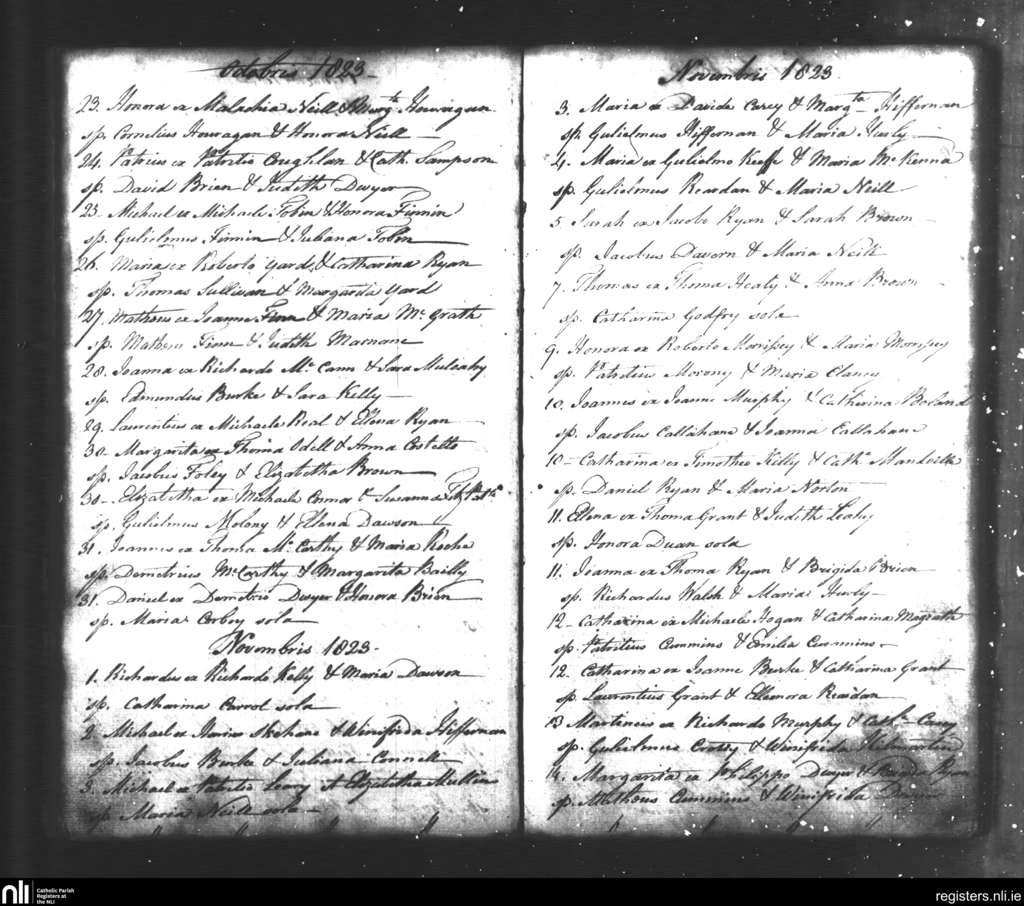 Octobris 1823
23. Honora ex Malachia Neill & Margta Hourigan
sp. Cornelius Houragan & Honora Neill
24. Patricius ex Patritio Coughlan & Cath. Sampson
sp. David Brien & Judith Dwyer
25. Michael ex Michaele Tobin & Honora Firmin
sp. Gulielmus Firmin & Juliana Tobin
26. Maria ex Roberto Yard & Catharina Ryan
sp. Thomas Sullivan & Margarita Yard
27. Matheus ex Joanne Finn & Maria Mc Grath
sp. Matheus Finn & Judith
28. Joanna ex Richardo Mc Cann & Sara Mulcahy
sp. Edmundus Burke & Sara Kelly
29. Laurentius ex Michaele Real & Ellena Ryan
30. Margarita ex Thoma Odell & Anna Costello
sp. Jacobus Foley & Elizabetha Brown
30. Elizabetha ex Michaele Connor & Susanna
sp. Gulielmus Molony & Ellena Dawson
31. Joannes ex Thoma Mc Carthy & Maria Roche
sp. Demetrius McCarthy & Margarita Reilly
31. Daniel ex Demetrio Dwyer & Honora Brien
sp. Maria Corboy sola
Novembris 1823
1. Richardus ex Richardo Kelly & Maria Dawson
sp. Catharina Carrol sola
2. Michael ex Skehane & Winifrida Hiffernan
sp. Jacobus Burke & Juliana Connell
3. Michael ex Patritio Leary & Elizabetha Mullin
sp. Maria Neill sola
Novembris 1823
3. Maria ex Davide Carey & Margta Hiffernan
sp. Gulielmus Hiffernan & Maria Hurly
4. Maria ex Gulielmo Keeffe & Maria Mc Kenna
sp. Gulielmus Reardan & Maria Neill
5. Sarah ex Jacobo Ryan & Sarah Brown
sp. Jacobus Davern & Maria Neill
7. Thomas ex Thoma Healy & Anna Brown
sp. Catharina Godfry sola
9. Honora ex Roberto Morrissey & Maria Morrissey
sp. Patritius Morony & Maria Clancy
10. Joannes ex Joanne Murphy & Catharina Boland
sp. Jacobus Callahane & Joanna Callahane
10. Catharina ex Timotheo Kelly & Catha Mandeville
sp. Daniel Ryan & Maria Norton
11. Ellena ex Thoma Grant & Judith Leahy
sp. Honora Duan sola
11. Joanna ex Thoma Ryan & Brigida Brien
sp. Richardus Walsh & Maria Hurly
12. Catharina ex Michaele Hogan & Catharina Magrath
sp. Patritius Cummins & Emilia Cummins
12. Catharina ex Joanne Burke & Catharina Grant
sp. Laurentius Grant & Elleonora Reardan
13 Martinus ex Richardo Murphy & Cath. Carey
sp. Gulielmus & Winifrida Kilmartin
14. Margarita ex Philippo Dwyer & Ryan
sp. Matheus Cummins & Winifrida
nli Catholic Parish Registers at the NLI
registers.nli.ie